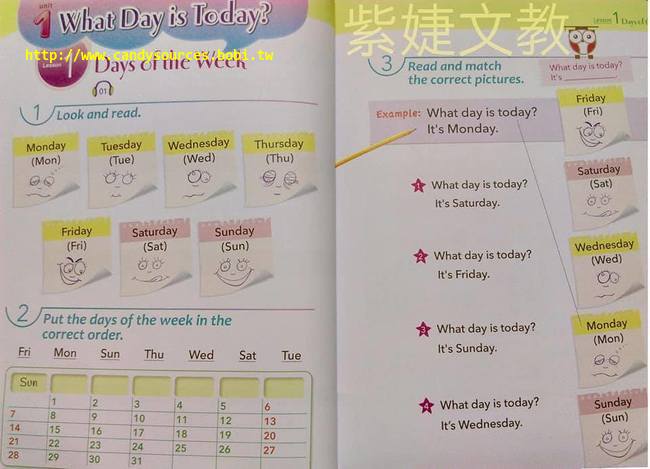 unit
1 What Day is Today?
http://www.candysources.bobi.tw
Lesson 1 Days of the Week
01
1 Look and read.
Monday
(Mon)
Tuesday
(Tue)
Wednesday
(Wed)
Thursday
(Thu)
Friday
(Fri)
Saturday
(Sat)
Sunday
(Sun)
2 Put the days of the week in the
correct order.
Fri Mon Sun Thu Wed Sat Tue
Sun
1 2 3 4 5 6
7 8 9 10 11 12 13
14 15 16 17 18 19 20
21 22 23 24 25 26 27
28 29 30 31
紫婕文教
Lesson 1
3 Read and match
the correct pictures.
What day is today?
It's
Example: What day is today?
It's Monday.
1 What day is today?
It's Saturday.
2 What day is today?
It's Friday.
3 What day is today?
It's Sunday.
4 What day is today?
It's Wednesday.
Friday
(Fri)
Saturday
(Sat)
Wednesday
(Wed)
Monday
(Mon)
Sunday
(Sun)